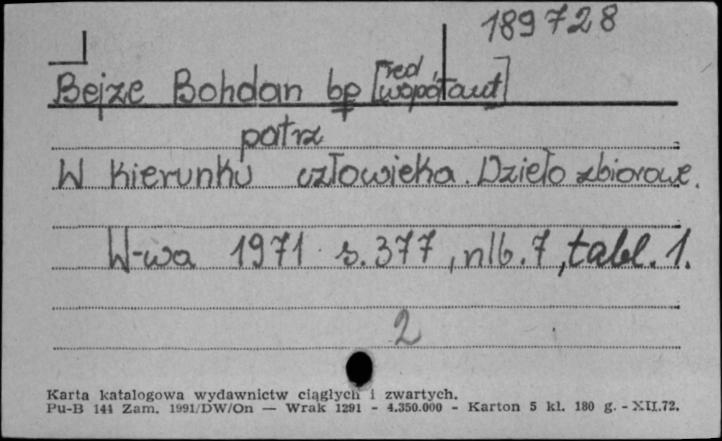 189728
Bejze Bohdan bp [red współaut]
patrz
W kierunku człowieka. Dzieło zbiorowe.
W-wa 1971 s. 377, nlb. 7, tabl. 1.
2
Karta katalogowa wydawnictw ciągłych i zwartych.
Pu-B 141 Zam. 1991/DW/On — Wrak 1291 - 4.350.000 - Karton 5 kl. 180 g. - XII.72.